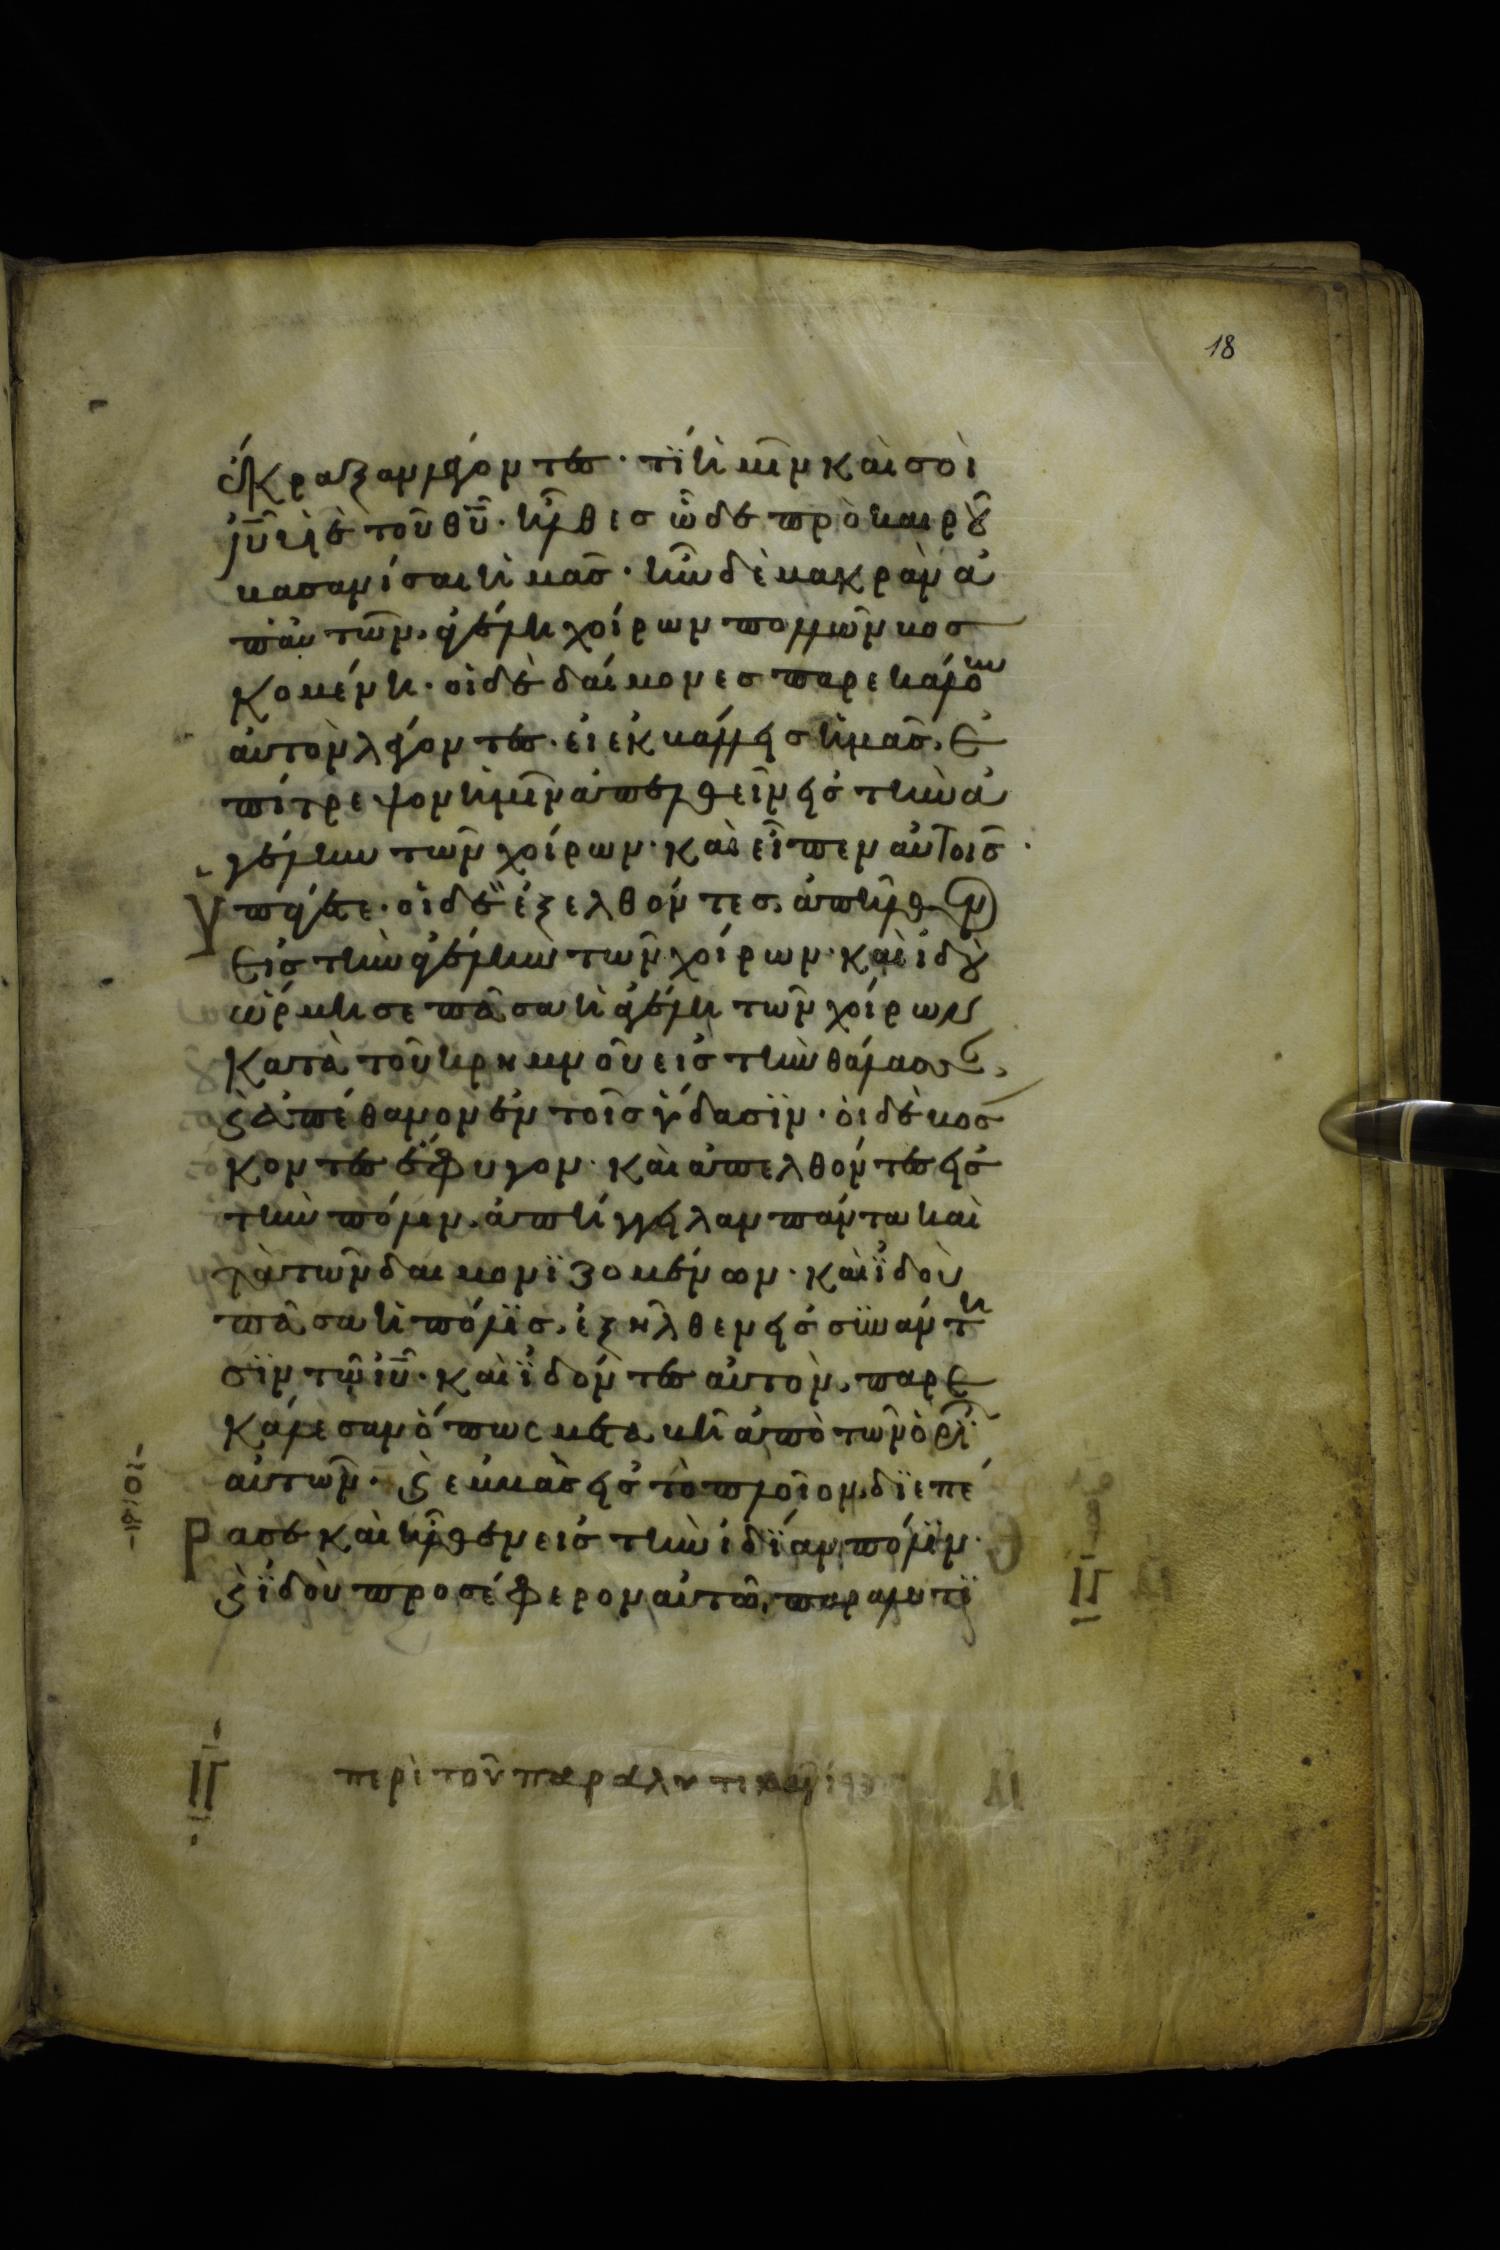 18
ἔκραξαν λέγοντες· τί ἡμῖν καὶ σοὶ
ἰῦ υἱὲ τοῦ θῦ· ἦλθες ὧδε πρὸ καιροῦ
βασανίσαι ἡμᾶς· ἦν δὲ μακρὰν ἀ
π αὐτῶν ἀγέλη χοίρων πολλῶν βοσ
κομένη· οἱ δὲ δαίμονες παρεκάλουν
αὐτὸν λέγοντες· εἰ ἐκβάλλεις ἡμᾶς, ἐ
πίτρεψον ἡμῖν ἀπελθεῖν εἰς τὴν ἀ
γέλην τῶν χοίρων· καὶ εἶπεν αὐτοῖς·
ὑπάγετε· οἱ δὲ ἐξελθόντες ἀπῆλθον
εἰς τὴν ἀγέλην τῶν χοίρων· καὶ ἰδοὺ
ὥρμησε πᾶσα ἡ ἀγέλη τῶν χοίρων
κατὰ τοῦ κρημνοῦ εἰς τὴν θάλασσαν,
ϗ ἀπέθανον ἐν τοῖς ὕδασϊν· οἱ δὲ βοσ
κοντες ἔφυγον· καὶ ἀπελθόντες εἰς
τὴν πόλιν, ἀπήγγειλαν πάντα καὶ
τὰ τῶν δαιμονϊζομένων· καὶ ἰδοὺ
πᾶσα ἡ πόλϊς ἐξῆλθεν εἰς συνάντη
σϊν τῷ ἰῦ· καὶ ἰδόντες αὐτὸν, παρε
κάλεσαν ὅπως μεταβῆ ἀπὸ τῶν ὁρί
αὐτῶν· ϗ ἐμβὰς εἰς τὸ πλοῖον, δϊεπέ
ρασε καὶ ἦλθεν εἰς τὴν ἰδίαν πόλϊν·
ϗ ἰδοὺ προσέφερον αὐτῶ, παραλυτϊ
ΙΓ
ΙΓ περὶ τοῦ παραλυτικοῦ